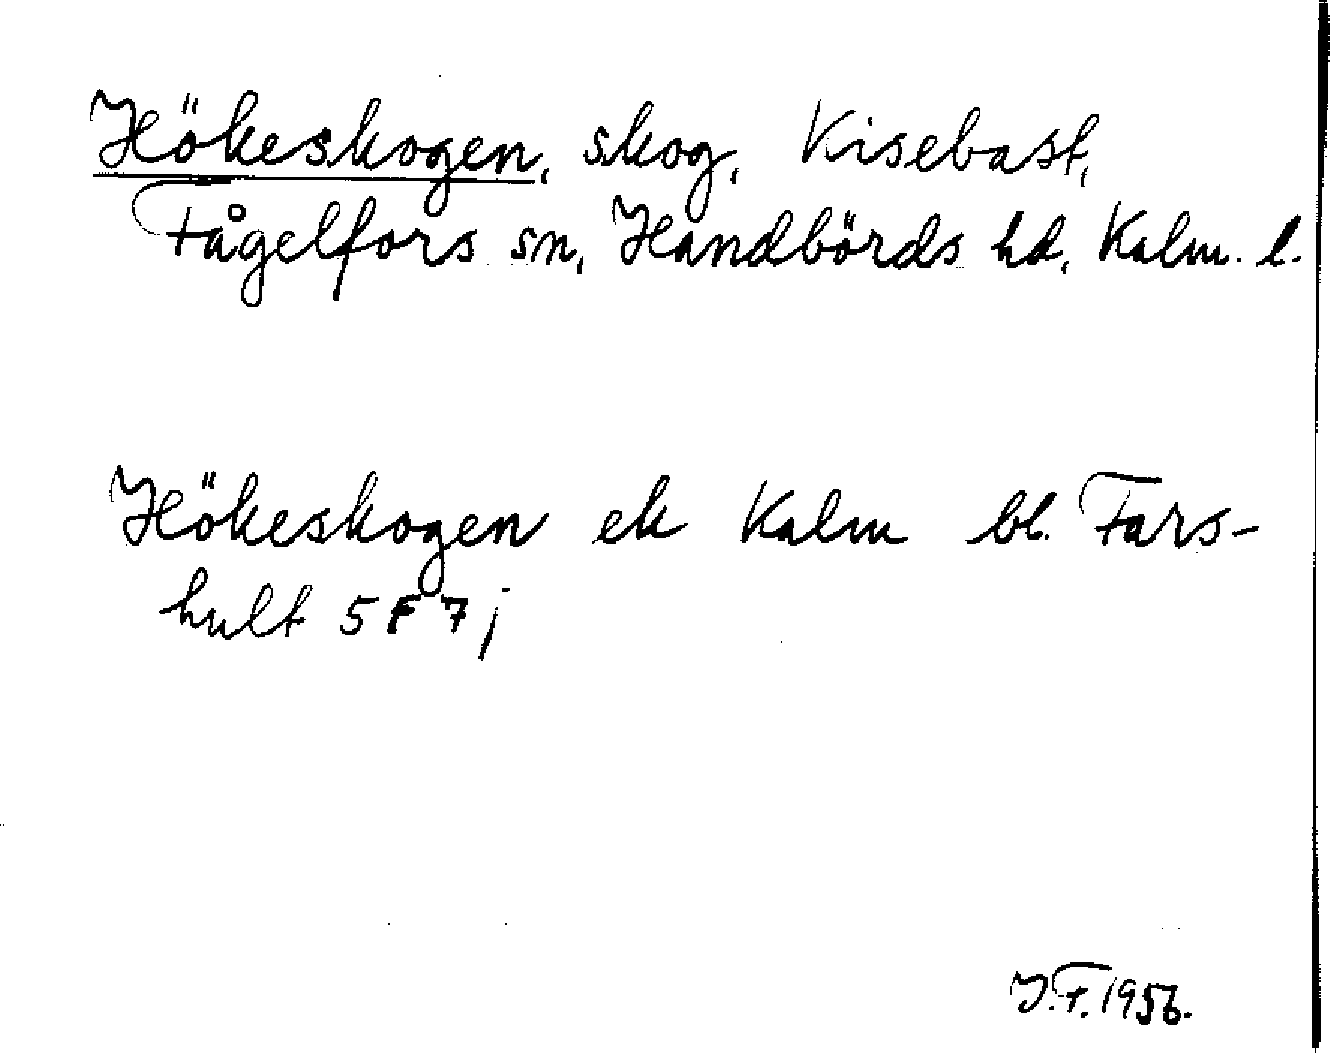 Hökeskogen, skog, Kisebast,
Fågelfors sn, Handbörds hd, Kalm. l.
Hökeskogen ek Kalm bl. Fars-
hult 5 F 7 j
J.F. 1956.